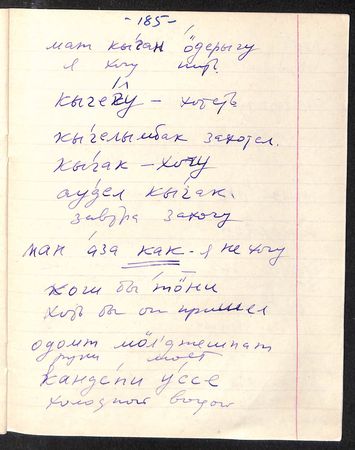 - 185 -
мат кы́ган ӧ́дерыгу
я хочу пить.
кыгеку – хотеть
кы́гелымбак захотел.
кы́гак – хочу
ау́дел кы́гак.
завтра захочу
ман а́за как - я не хочу
хош бы то́ни
хоть бы он пришел
одомт мӧлджешпат
руки моет
кандёпи у́ссе
холодной водой